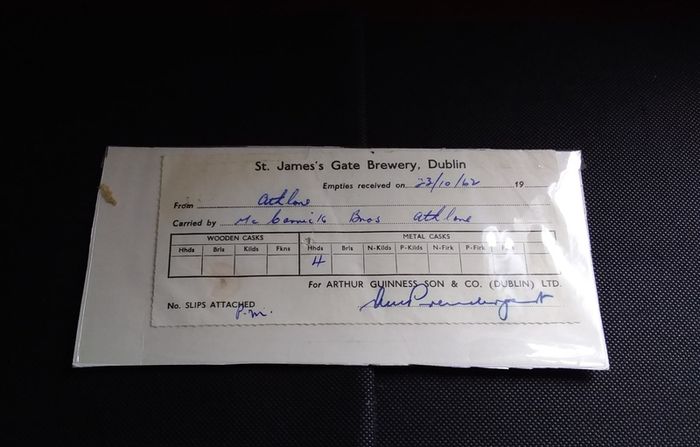 St. James's Gate Brewery, Dublin
Empties received on 23/10/62 19
From Athlone
Carried by McCormick Bros Athlone
WOODEN CASKS METAL CASKS
Hhds Brls Kilds Fkns Hhds Brls N-Kilds P-Kilds N-Firk P-Firk
4
For ARTHUR GUINNESS SON & CO. (DUBLIN) LTD.
No. SLIPS ATTACHED
P.M. Prendergast